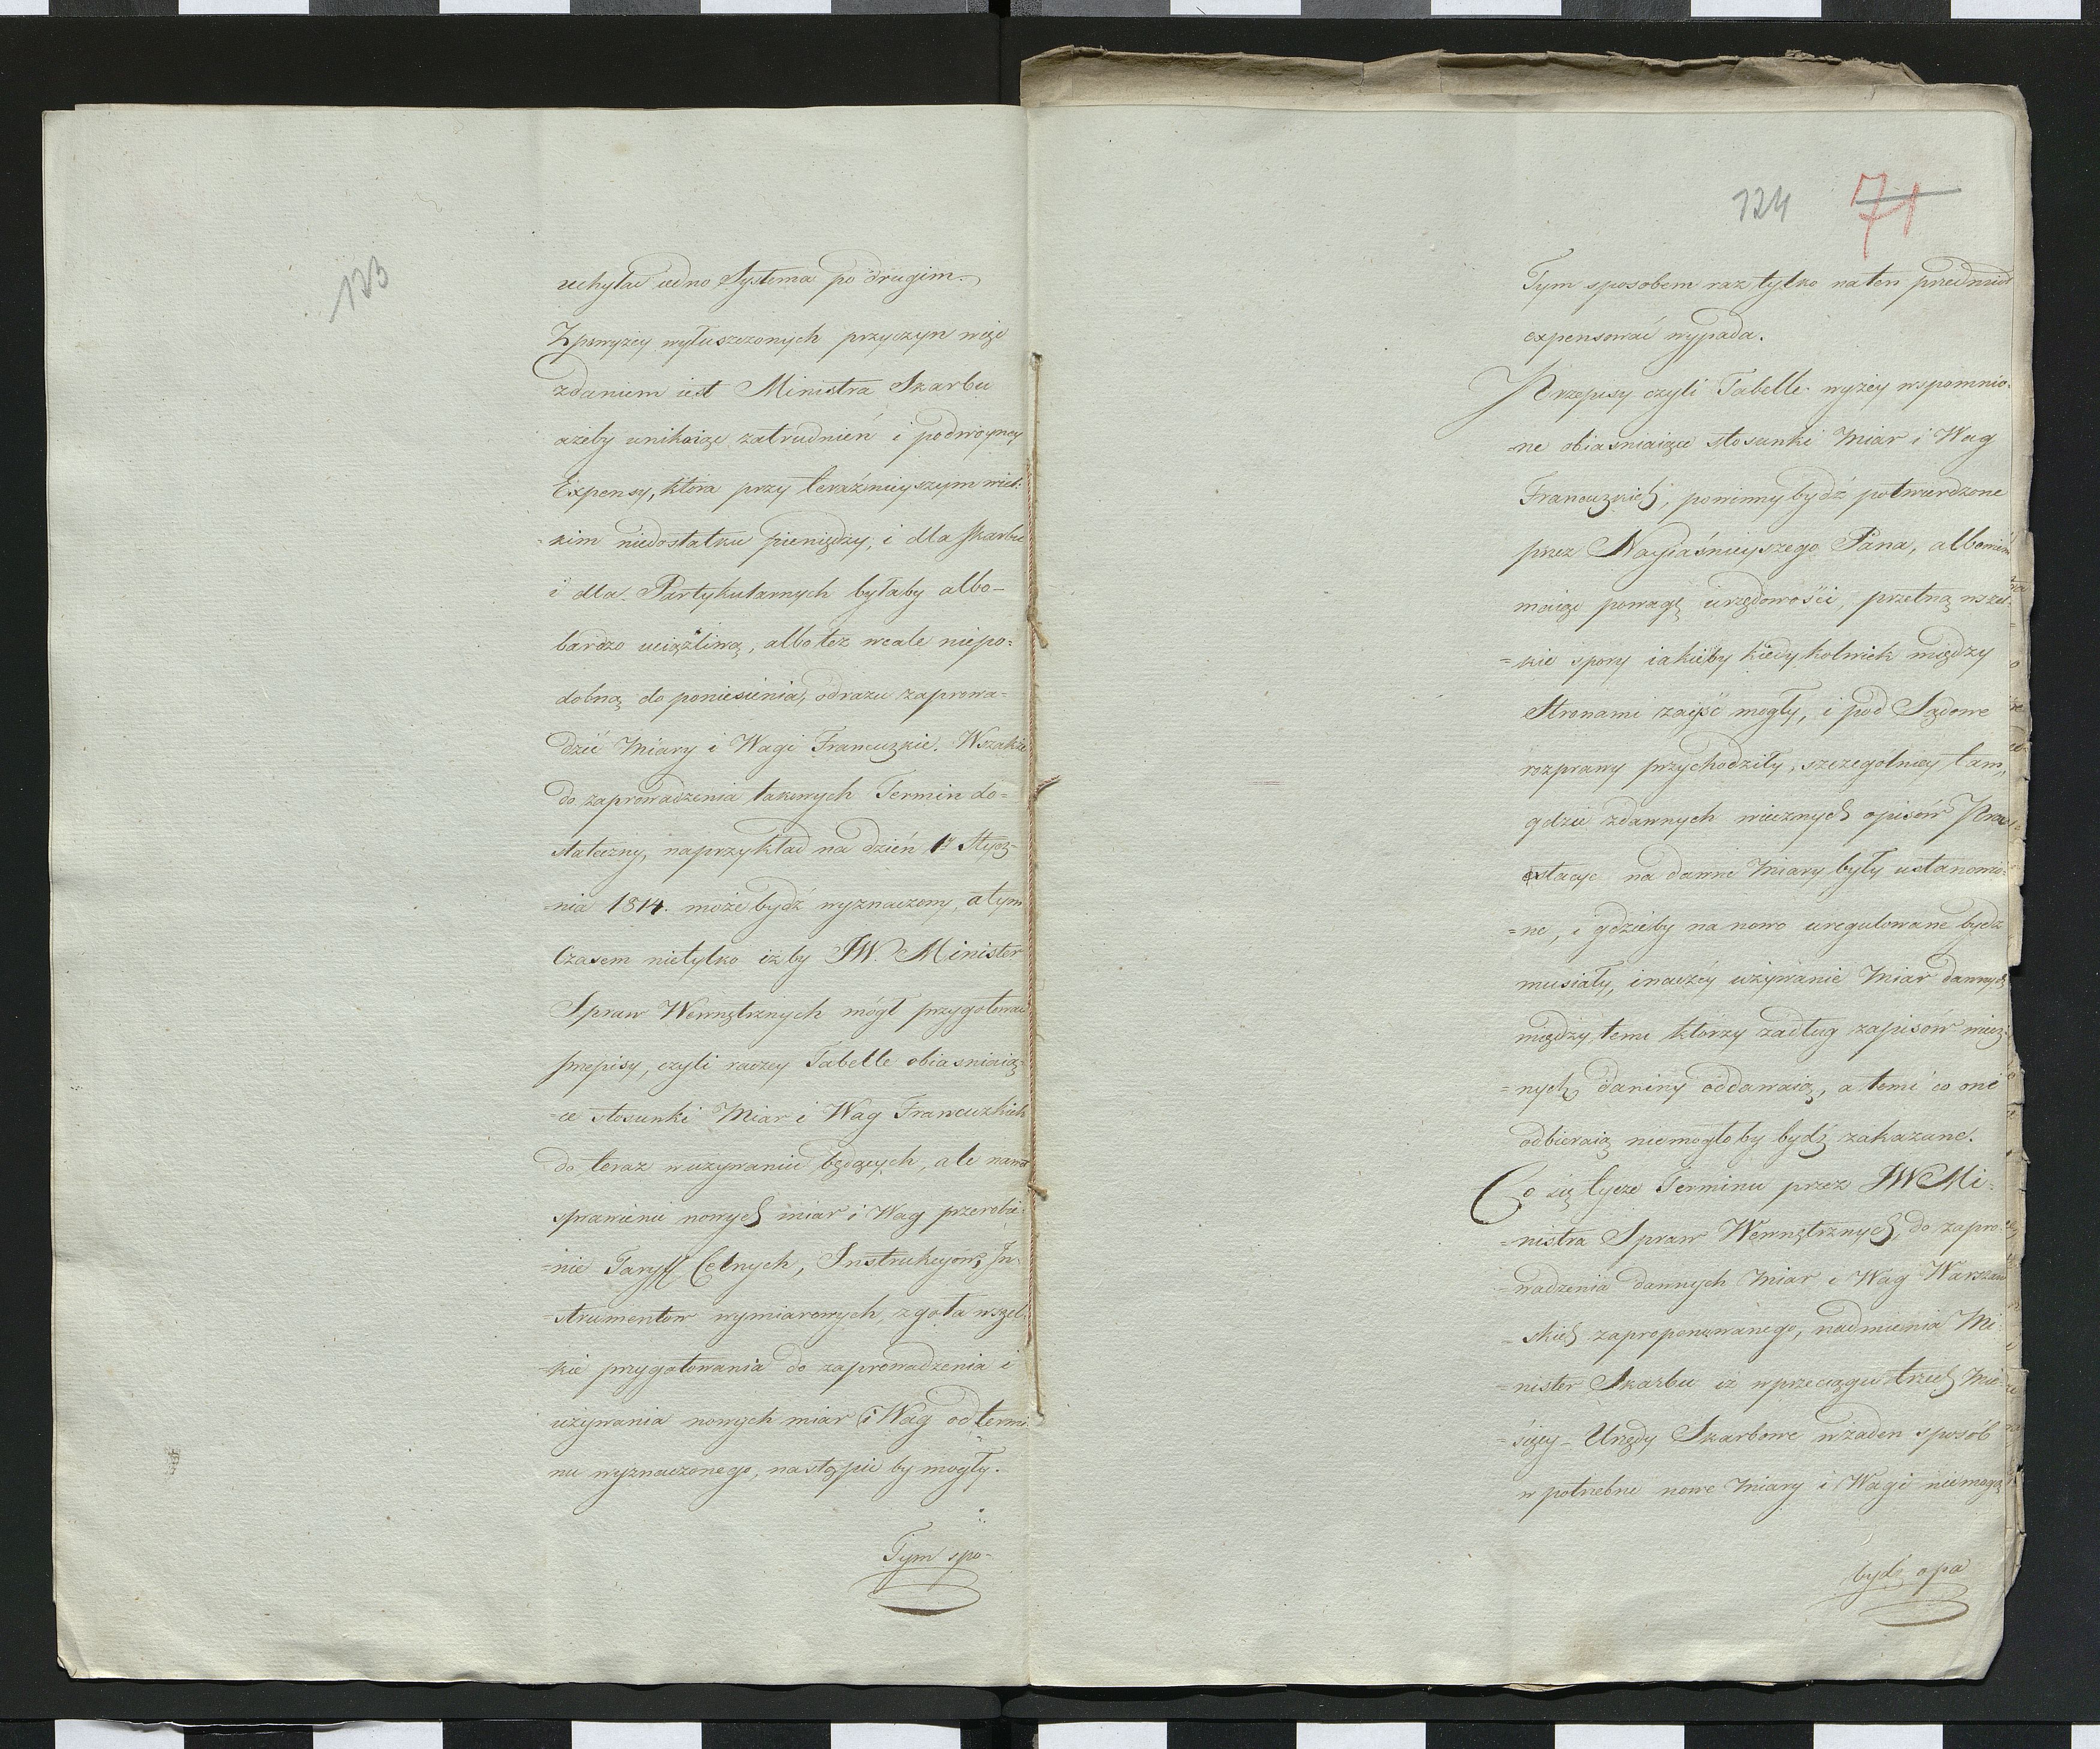 123
uchylać iedno Systema po drugim.
Z powyżey wyłuszczonych przyczyn więc
zdaniem iest Ministra Skarbu
ażeby unikaiąc zatrudnień i podwóyney
Expensy, która przy teraźnieyszym wiel-
=kim niedostatku pieniędzy, i dla Skarbu
i dla Partykularnych byłaby albo-
bardzo uciążliwą, albo też wcale niepo=
dobną do poniesienia, odrazu zaprowa=
dzić Miary i Wagi Francuzkie. Wszakże
do zaprowadzenia takowych Termin do=
stateczny, naprzykład na dzień 1º Stycz-
=nia 1814. może bydź wyznaczony, a tym
Czasem nietylko iżby JW. Minister
Spraw Wewnętrznych mógł przygotować
przepisy, czyli raczey Tabelle obiasniaią=
=ce stosunki Miar i Wag Francuzkich
do teraz w używaniu będących, ale nawet
sprawienie nowych miar i Wag przerobie=
=nie Taryff Celnych, Instrukcyow, In=
=strumentow wymiarowych, zgoła wszel=
=kie przygotowania do zaprowadzenia i
używania nowych miar i Wag od termi=
nu wyznaczonego, nastąpić by mogły.
Tym spo-
124 71
Tym sposobem raz tylko na ten przedmiot
expensować wypada.
Przepisy czyli Tabelle wyżey wspomnio=
=ne obiasniaiące stosunki Miar i Wag
Francuzkich, powinny bydź potwierdzone
przez Nayiaśnieyszego Pana, albowiem
maiąc powagę urzędowości, przetną wszel=
=kie spory iakieby kiedykolwiek między
Stronami zaiść mogły, i pod Sądowe
rozprawy przychodziły, szczególniey tam,
gdzie zdawnych wiecznych opisów Prae
estacye na dawne Miary były ustanowio=
=ne, i gdzieby na nowo uregulowane bydź
musiały, inaczéy używanie Miar dawnych
między temi którzy zadług zapisów wiecz=
=nych daniny oddawaią, a temi co one
odbieraią niemogłoby bydź zakazane.
Co się tycze Terminu przez JW Mi=
=nistra Spraw Wewnętrznych, do zapro=
=wadzenia dawnych Miar i Wag Warszaw
=skich zaproponowanego, nadmienia Mi
=nister Skarbu iż w przeciągu trzech Mie
=sięcy_ Urzędy Skarbowe w żaden sposób
w potrzebne nowe Miary i Wagi niemogą
bydź opa